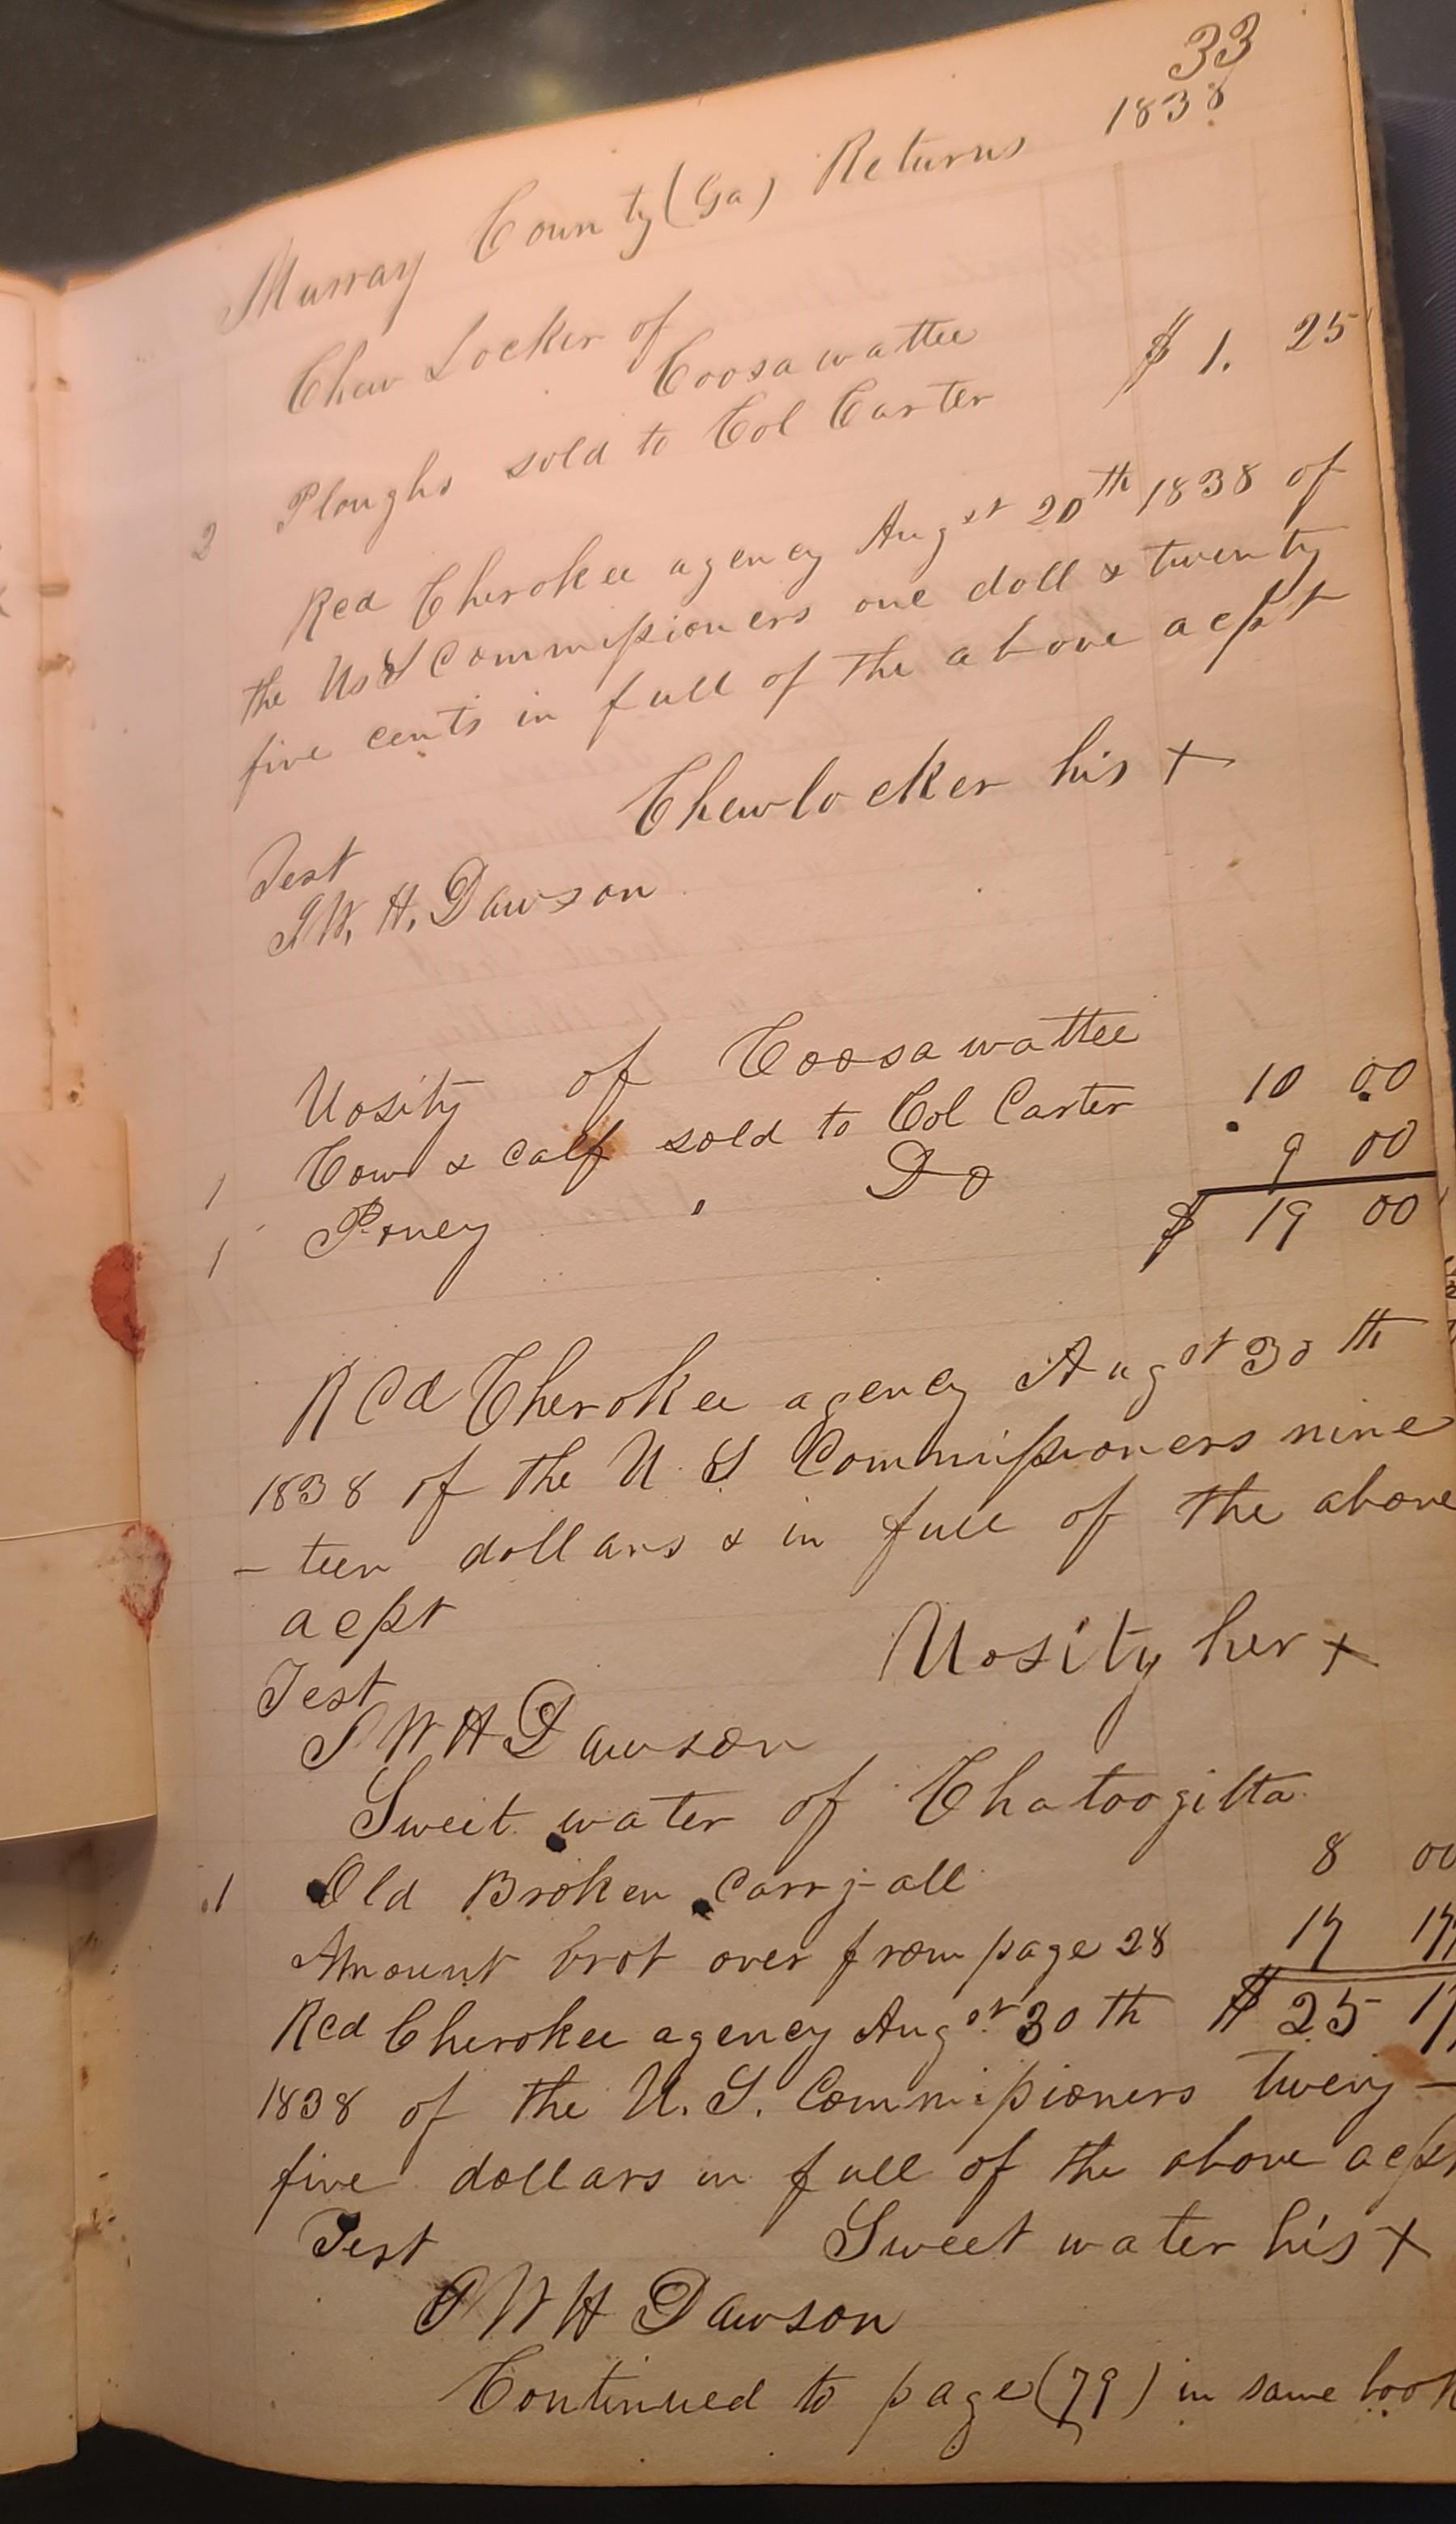 33
Murray County (Ga) Returns 1838
Chew Locker of
Coosawattee
2 Ploughs sold to Col Carter $ 1. 25
Recd Cherokee agency Augst 20th 1838 of
the U S Commissioners one doll & twenty
five cents in full of the above acpt
Chewlocker his +
Test
J W. H. Dawson
Uosity of Coosawattee
1 Cow & calf sold to Col Carter 10 00
1 Poney " Do 9 00
$ 19 00
Rcd Cherokee agency Augst 30th
1838 of the U. S Commissioners nine
- teen dollars & in full of the above
acpt
Uosity her +
Test
J W H Dawson
Sweet water of Chatoogitta
1 Old Broken Carry-all 8 00
Amount brot over from page 28 17 17
Rcd Cherokee agency Augst 30th $ 25 17
1838 of the U. S. Commissioners tweny -
five dollars in full of the above acpt
Test Sweet water his +
J W H Dawson
Continued to page (79) in same book